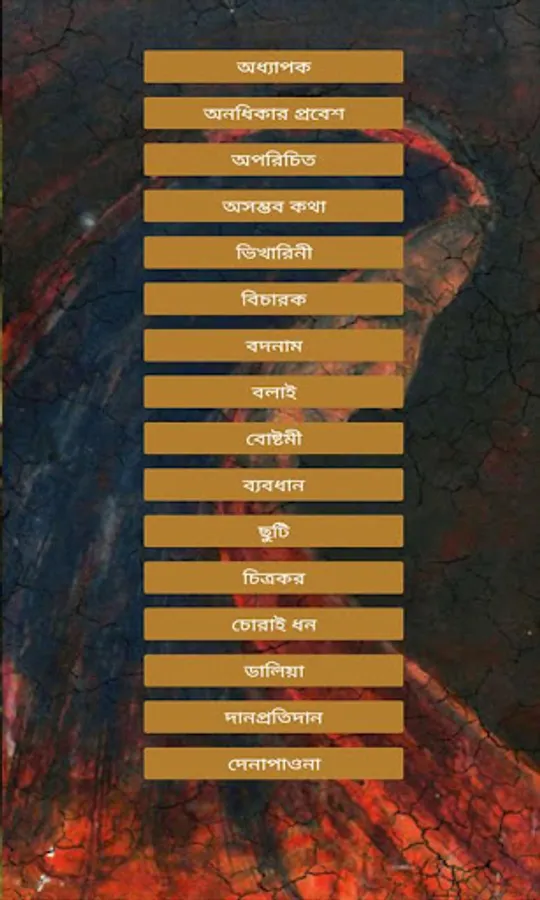 অধ্যাপক
অনধিকার প্রবেশ
অপরিচিত
অসম্ভব কথা
ভিখারিনী
বিচারক
বদনাম
বলাই
বোষ্টমী
ব্যবধান
ছুটি
চিত্রকর
চোরাই ধন
ডালিয়া
দানপ্রতিদান
দেনাপাওনা